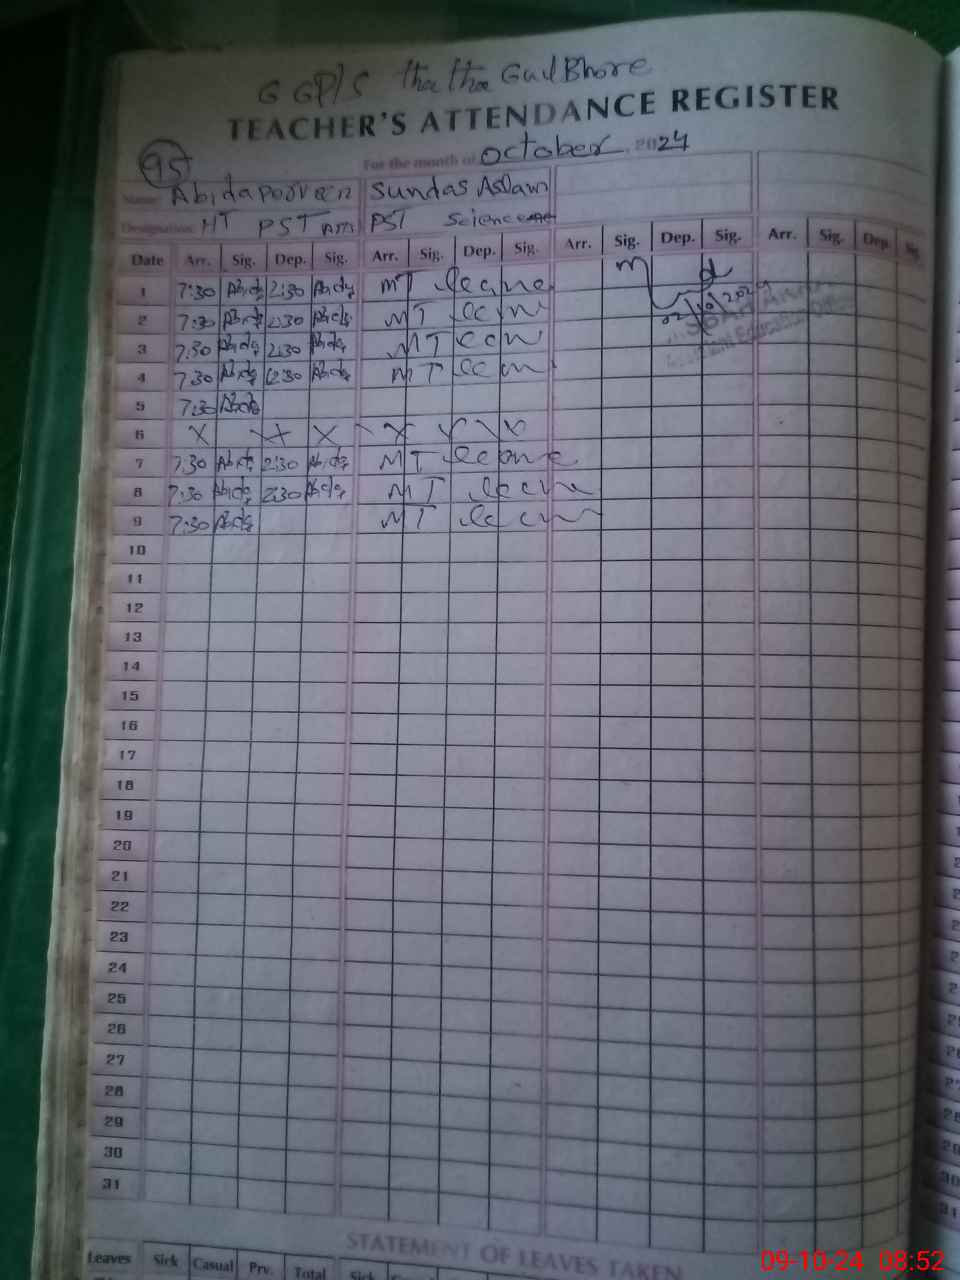 G GP/S tha tha Gul Bhore
TEACHER'S ATTENDANCE REGISTER
95 For the month of October, 2024
Name Abida Parveen Sundas Aslam
Designation HT PST PST Science
Date Arr. Sig. Dep. Sig. Arr. Sig. Dep. Sig. Arr. Sig. Dep. Sig. Arr. Sig. Dep. Sig.
1 7:30 Abida 2:30 Abida MT Leave
2 7:30 Abida 2:30 Abida MT Leave 02/10/2024
3 7:30 Abida 2:30 Abida MT
4 7:30 Abida 2:30 Abida MT
5 7:30 Abida
6 X X X X X X X X
7 7:30 Abida 2:30 Abida MT Leave
8 7:30 Abida 2:30 Abida MT Leave
9 7:30 Abida MT Leave
10
11
12
13
14
15
16
17
18
19
20
21
22
23
24
25
26
27
28
29
30
31
STATEMENT OF LEAVES TAKEN
Leaves Sick Casual Prv. Total Sick
09-10-24 08:52